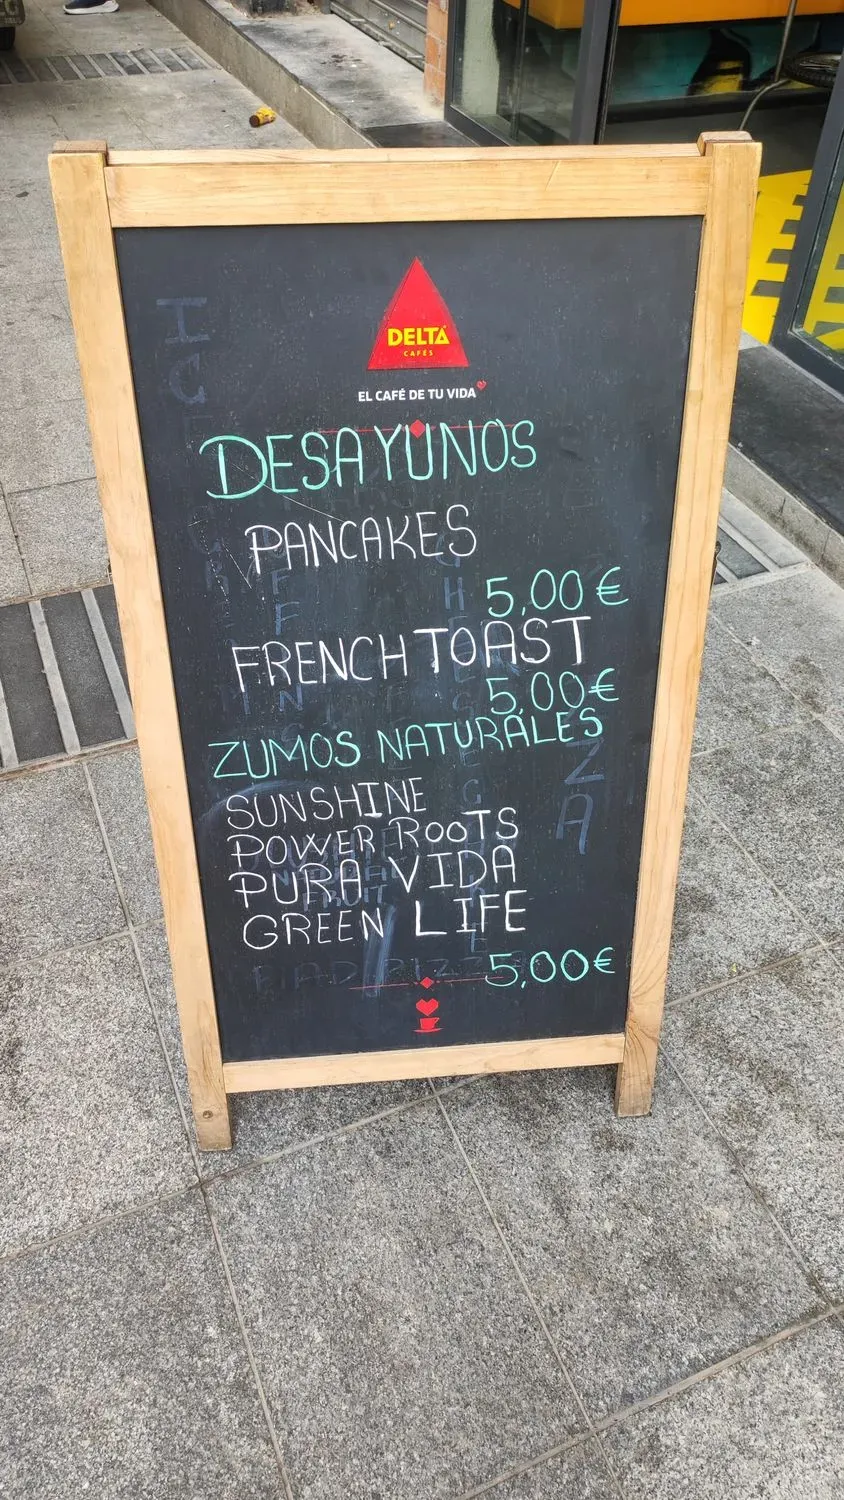 DELTA
CAFÉS
EL CAFÉ DE TU VIDA
DESAYUNOS
PANCAKES
5,00 €
FRENCH TOAST
5,00 €
ZUMOS NATURALES
SUNSHINE
POWER ROOTS
PURA VIDA
GREEN LIFE
5,00 €